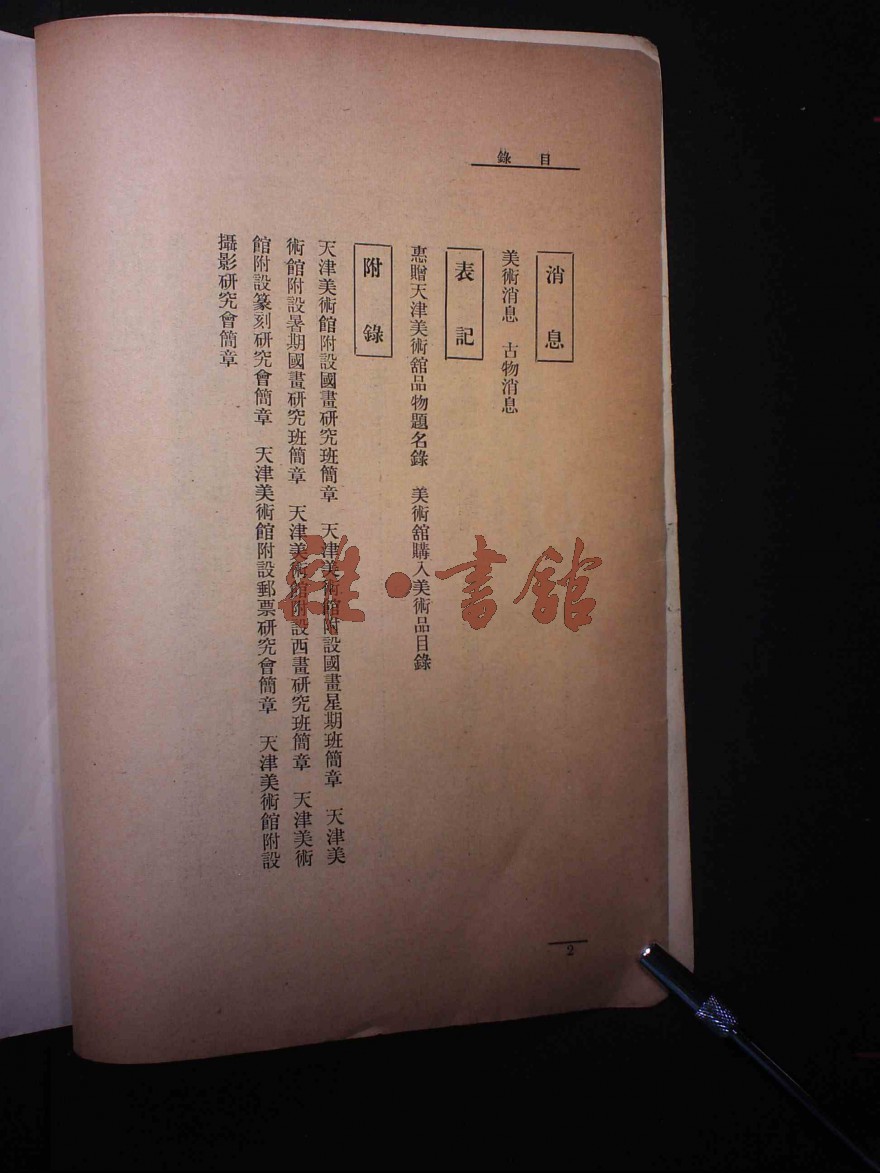 目錄
消息
美術消息　古物消息
表記
惠贈天津美術舘品物題名錄　美術舘購入美術品目錄
附錄
天津美術館附設國畫研究班簡章　天津美術館附設國畫星期班簡章　天津美
術館附設暑期國畫研究班簡章　天津美術館附設西畫研究班簡章　天津美術
館附設篆刻研究會簡章　天津美術館附設郵票研究會簡章　天津美術館附設
攝影研究會簡章
2
雜·書館